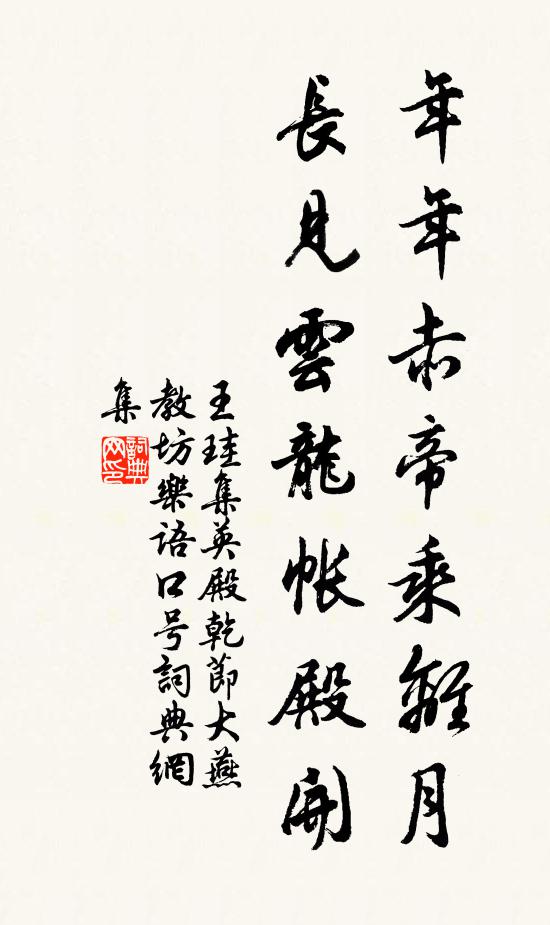 年年赤帝乘離月
長見雲龍帳殿開
王珪集英殿乾節大燕
教坊樂語口号詞典網
集
詞典网印